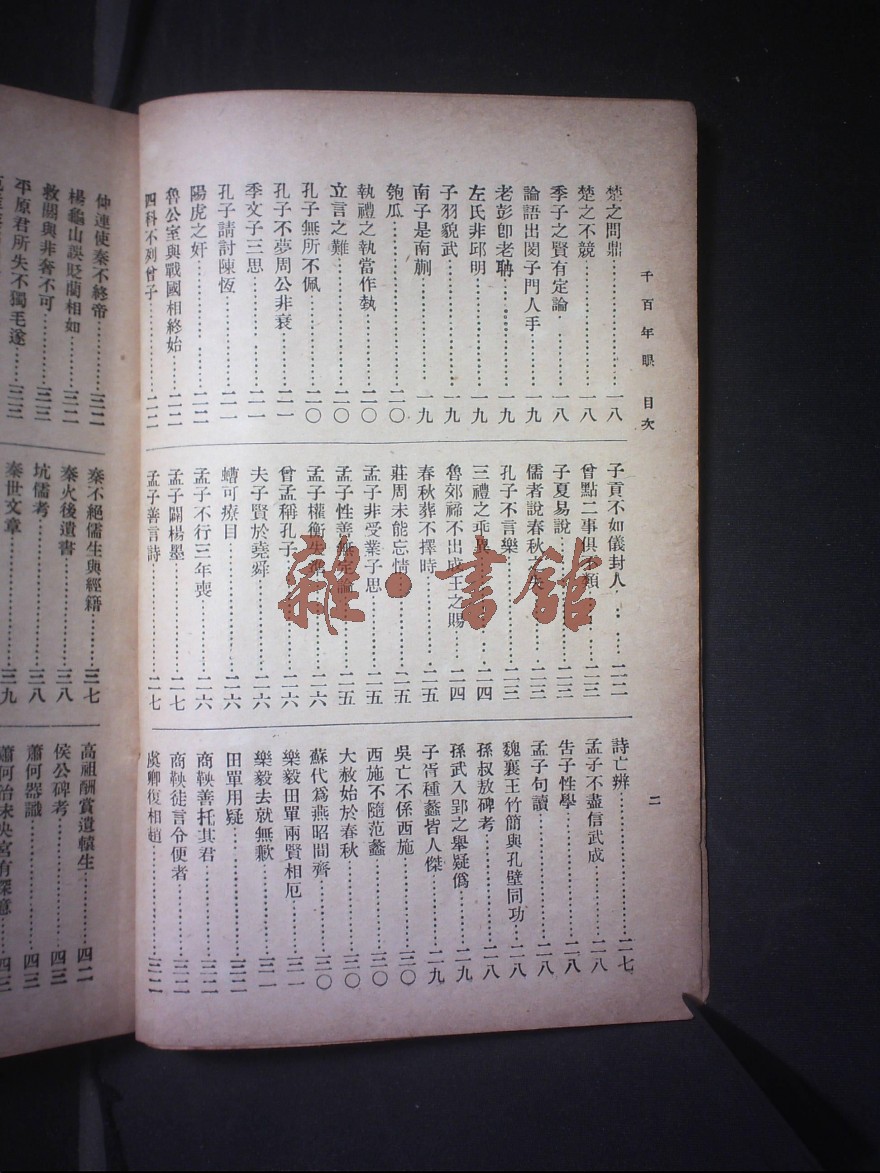 千百年眼　目次
二
楚之問鼎……一八
楚之不競……一八
季子之賢有定論……一八
論語出閔子門人手……一九
老彭卽老聃……一九
左氏非邱明……一九
子羽貌武……一九
南子是南蒯……一九
匏瓜……二〇
執禮之執當作埶……二〇
立言之難……二〇
孔子無所不佩……二〇
孔子不夢周公非衰……二一
季文子三思……二一
孔子請討陳恆……二一
陽虎之奸……二二
魯公室與戰國相終始……二二
四科不列曾子……二二
子貢不如儀封人……二二
曾點二事俱不類……二三
子夏易說……二三
儒者說春秋之失……二三
孔子不言樂……二三
三禮之乖異……二四
魯郊禘不出成王之賜……二四
春秋葬不擇時……二五
莊周未能忘情……二五
孟子非受業子思……二五
孟子性善無定論……二五
孟子權衡……二六
曾孟稱孔子……二六
夫子賢於堯舜……二六
螬可療目……二六
孟子不行三年喪……二六
孟子闢楊墨……二七
孟子善言詩……二七
詩亡辨……二七
孟子不盡信武成……二八
告子性學……二八
孟子句讀……二八
魏襄王竹簡與孔壁同功……二八
孫叔敖碑考……二八
孫武入郢之舉疑僞……二九
子胥種蠡皆人傑……二九
吳亡不係西施……三〇
西施不隨范蠡……三〇
大赦始於春秋……三〇
蘇代爲燕昭間齊……三〇
樂毅田單兩賢相厄……三一
樂毅去就無歉……三一
田單用疑……三二
商鞅善托其君……三二
商鞅徒言令便者……三二
虞卿復相趙……三二
仲連使秦不終帝……三二
楊龜山誤貶藺相如……三二
救閼與非奢不可……三三
平原君所失不獨毛遂……三三
秦不絕儒生與經籍……三七
秦火後遺書……三八
坑儒考……三八
秦世文章……三九
高祖酬賞遺轅生……四二
侯公碑考……四三
蕭何器識……四三
蕭何治未央宮有深意……四三
雜·書館